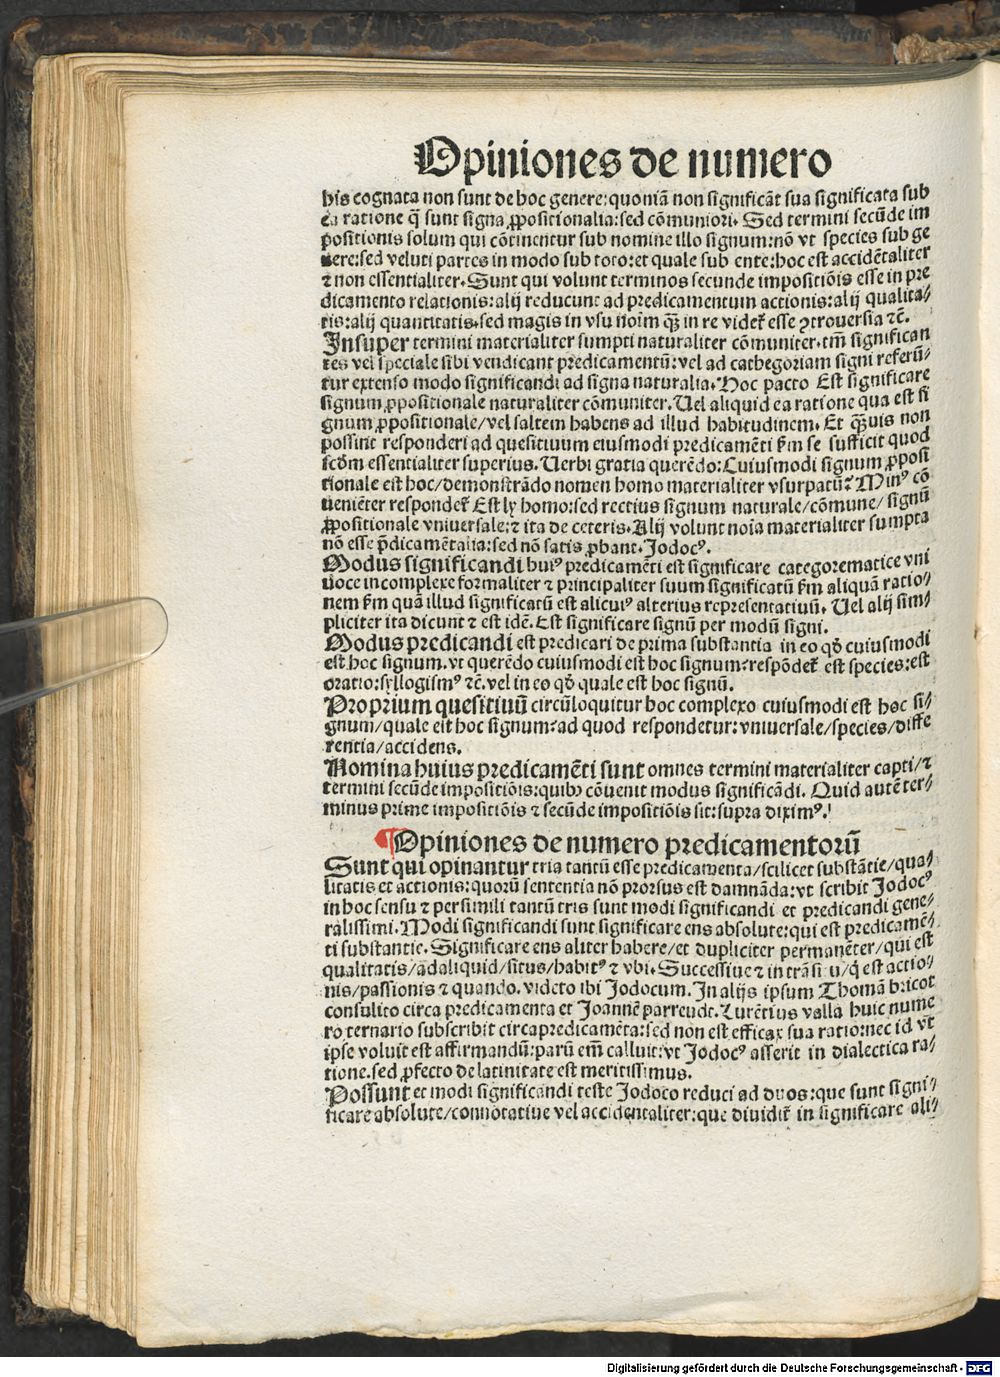 Opiniones de numero
his cognata non sunt de hoc genere: quoniā non significāt sua significata sub
ea ratione q̄ sunt signa ꝓpositionalia: sed cōmuniori. Sed termini secūde im
positionis solum qui cōtinentur sub nomine illo signum: nō vt species sub ge
nere: sed veluti partes in modo sub toto: et quale sub ente: hoc est accidētaliter
⁊ non essentialiter. Sunt qui volunt terminos secunde impositiōis esse in pre
dicamento relationis: alij reducunt ad predicamentum actionis: alij qualita⸗
tis: alij quantitatis. sed magis in vsu noīm q̄ꝫ in re videt᷑ esse ꝯtrouersia ⁊c̄.
Insuper termini materialiter sumpti naturaliter cōmuniter. tm̄ significan
tes vel speciale sibi vendicant predicamentū: vel ad cathegoriam signi referū⸗
tur extenso modo significandi ad signa naturalia. Hoc pacto Est significare
signum ꝓpositionale naturaliter cōmuniter. Uel aliquid ea ratione qua est si
gnum ꝓpositionale/ vel saltem habens ad illud habitudinem. Et q̄ꝫuis non
possint responderi ad quesitiuum eiusmodi predicamēti ẜm se sufficit quod
scd̄m essentialiter superius. Uerbi gratia querēdo: Cuiusmodi signum ꝓposi
tionale est hoc/ demonstrādo nomen homo materialiter vsurpatū? Minꝰ cō
ueniēter respondet᷑ Est ly homo: sed rectius signum naturale/ cōmune/ signū
ꝓpositionale vniuersale: ⁊ ita de ceteris. Alij volunt noīa materialiter sumpta
nō esse p̄dicamētalia: sed nō satis ꝓbant. Jodocꝰ.
Modus significandi huiꝰ predicamēti est significare categorematice vni
uoce incomplexe formaliter ⁊ principaliter suum significatū ẜm aliquā ratio⸗
nem ẜm quā illud significatū est alicuiꝰ alterius representatiuū. Uel alij sim⸗
pliciter ita dicunt ⁊ est idē. Est significare signū per modū signi.
Modus predicandi est predicari de prima substantia in eo qd̄ cuiusmodi
est hoc signum. vt querēdo cuiusmodi est hoc signum? respōdet᷑ est species: est
oratio: syllogismꝰ ⁊c̄. vel in eo qd̄ quale est hoc signū.
Proprium quesitiuū circūloquitur hoc complexo cuiusmodi est hoc si⸗
gnum/ quale est hoc signum? ad quod respondetur: vniuersale/ species/ diffe
rentia/ accidens.
Nomina huius predicamēti sunt omnes termini materialiter capti/ ⁊
termini secūde impositiōis: quibꝰ cōuenit modus significādi. Quid autē ter⸗
minus prime impositiōis ⁊ secūde impositiōis sit: supra diximꝰ.
¶ Opiniones de numero predicamentorū
Sunt qui opinantur tria tantū esse predicamenta/ scilicet substātie/ qua⸗
litatis et actionis: quorū sententia nō prorsus est damnāda: vt scribit Jodocꝰ
in hoc sensu ⁊ persimili tantū tris sunt modi significandi et predicandi gene⸗
ralissimi. Modi significandi sunt significare ens absolute: qui est predicamē⸗
ti substantie. Significare ens aliter habere/ et dupliciter permanēter/ qui est
qualitatis/ ad aliquid/ situs/ habitꝰ ⁊ vbi. Successiue ⁊ in trāsitu/ q̇ est actio⸗
nis/ passionis ⁊ quando. videto ibi Jodocum. In alijs ipsum Thomā bricot
consulito circa predicamenta et Joannē parreudt. Laurētius valla huic nume
ro ternario subscribit circa predicamēta: sed non est efficax sua ratio: nec id vt
ipse voluit est affirmandū: parū em̄ calluit: vt Jodocꝰ asserit in dialectica ra⸗
tione. sed ꝓfecto de latinitate est meritissimus.
Possunt et modi significandi teste Jodoco reduci ad duos: que sunt signi⸗
ficare absolute/ connotatiue vel accidentaliter: que diuidit᷑ in significare ali⸗
Digitalisierung gefördert durch die Deutsche Forschungsgemeinschaft - DFG